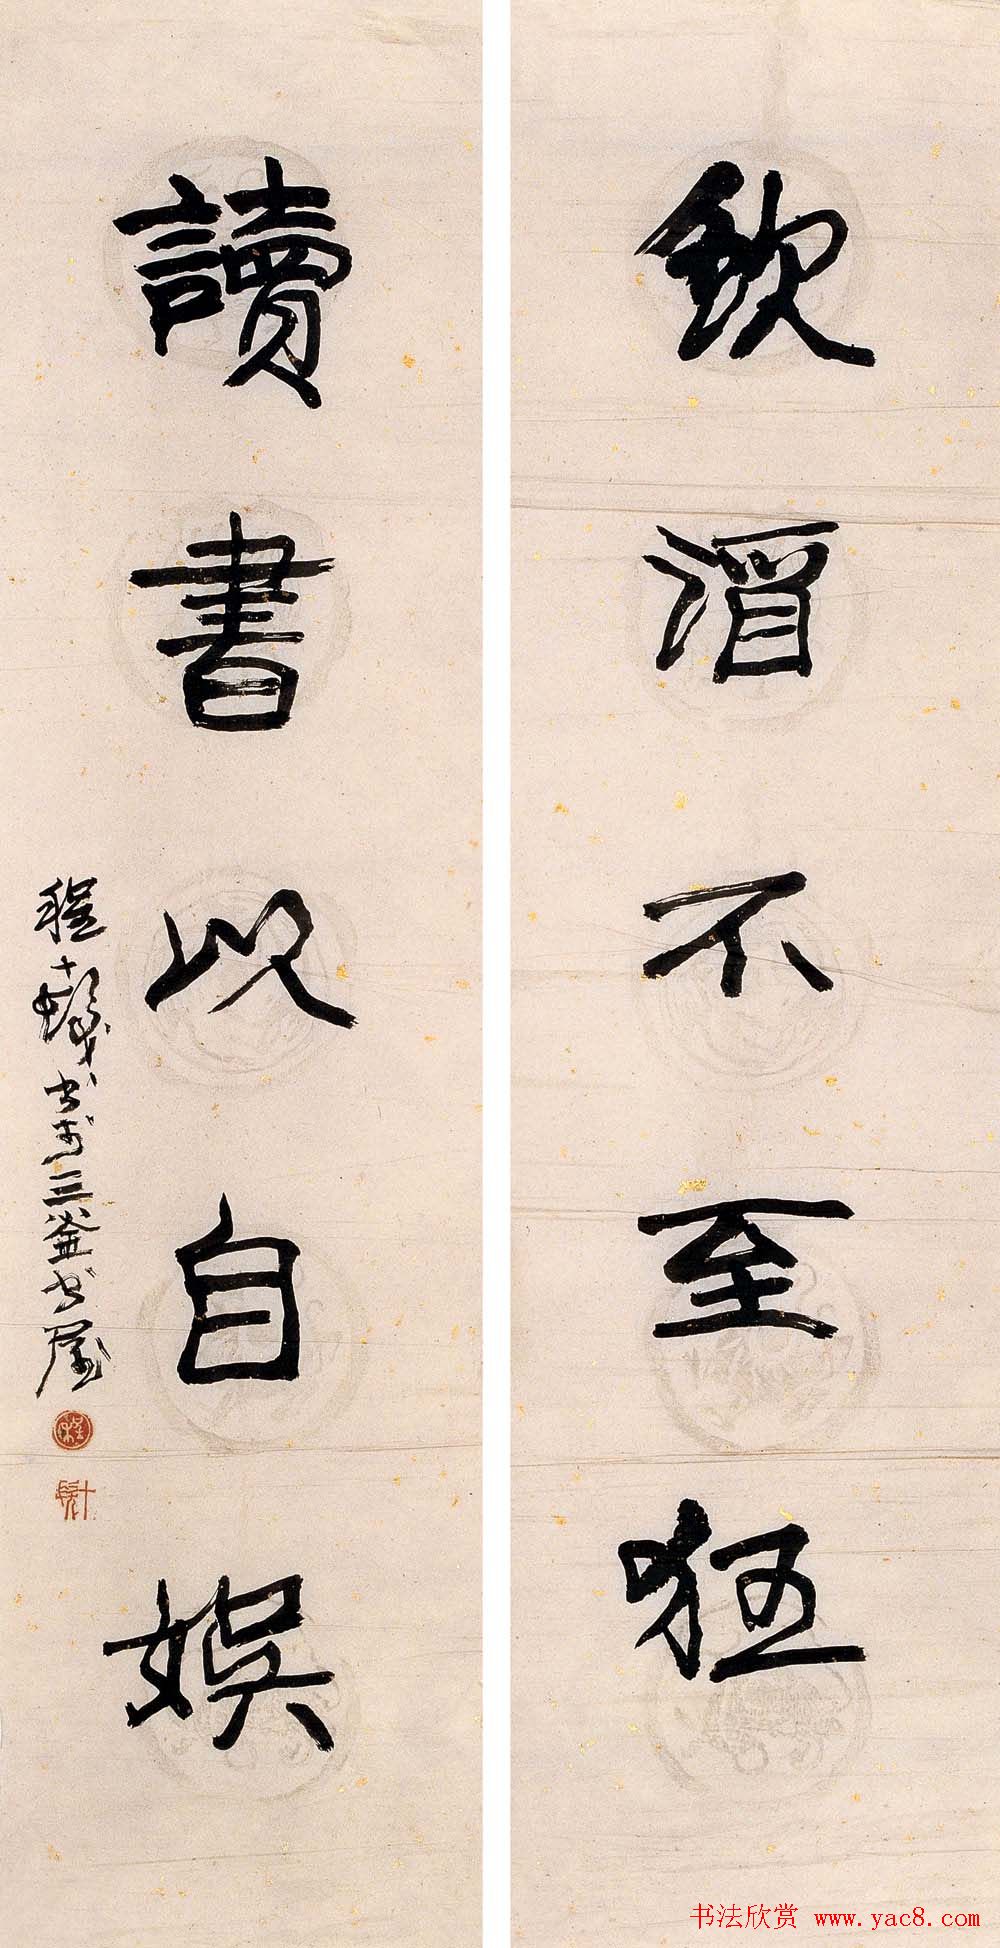 飲酒不至狂
讀書以自娛
程十髮书於三釜书屋
程
十髮
书法欣赏 www.yac8.com